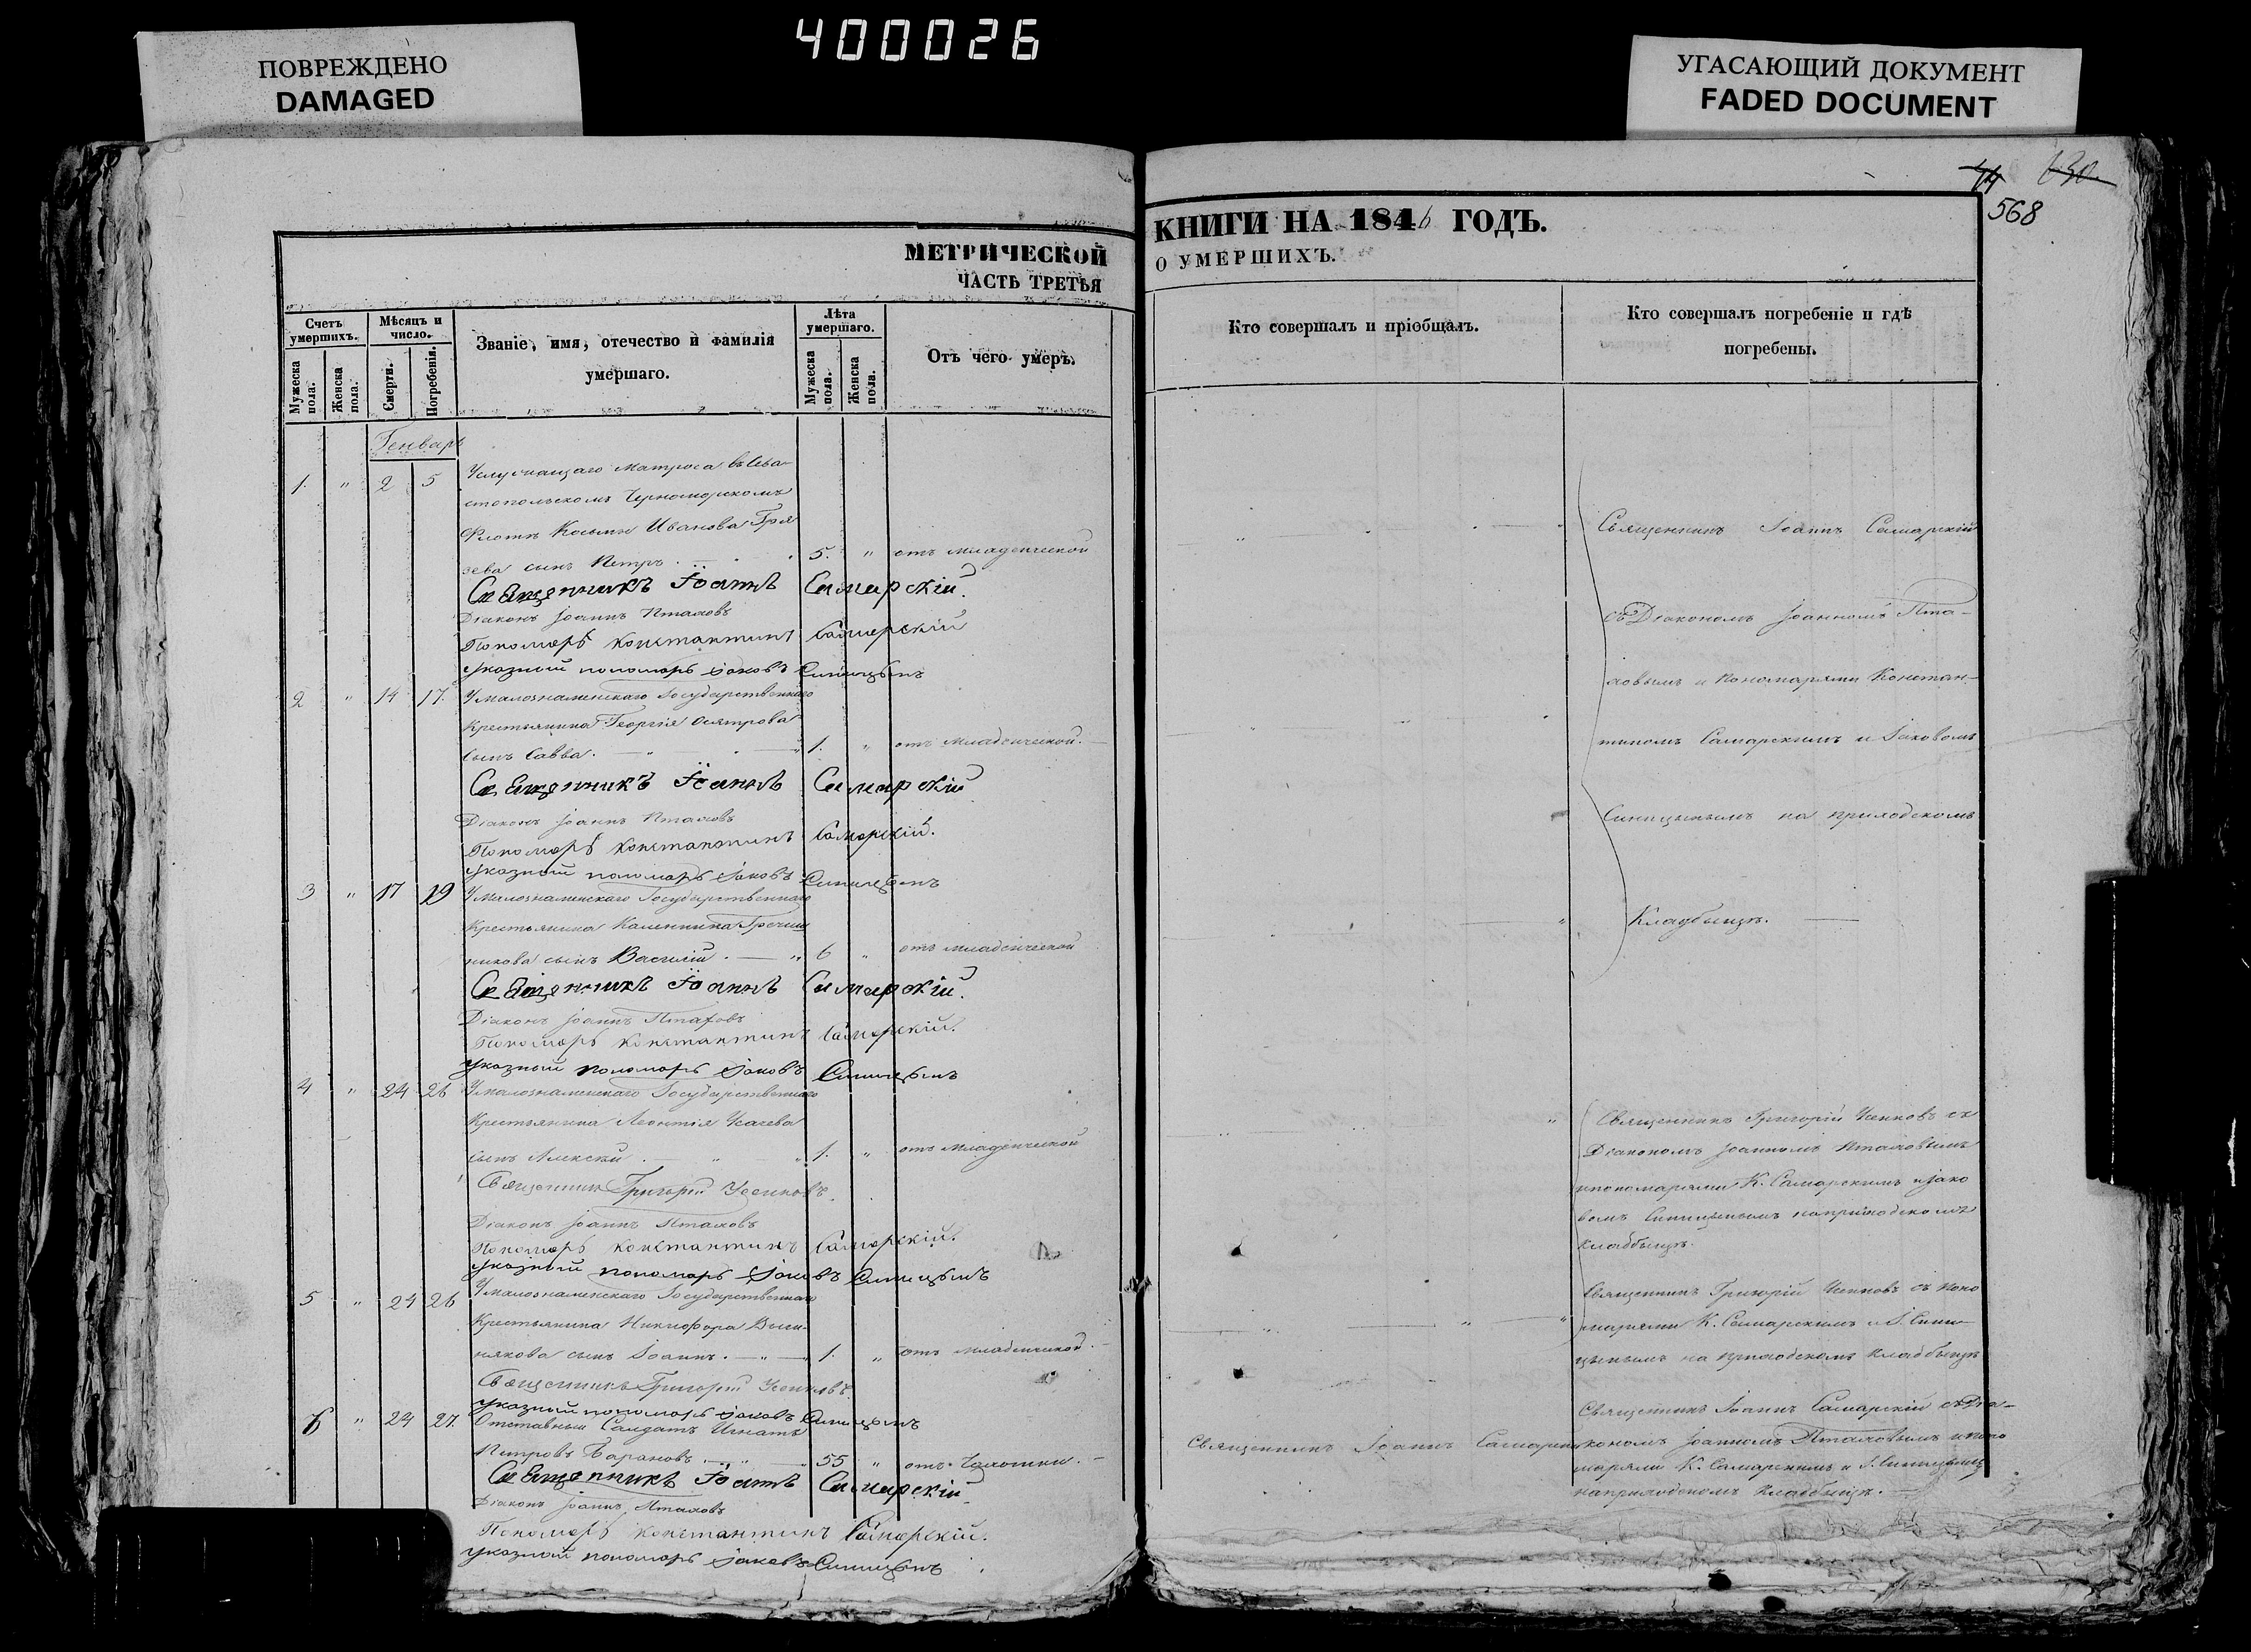 400026
ПОВРЕЖДЕНО
DAMAGED
УГАСАЮЩИЙ ДОКУМЕНТ
FADED DOCUMENT
568
МЕТРИЧЕСКОЙ
ЧАСТЬ ТРЕТЬЯ
Счетъ умершихъ.
Мужеска пола.
Женска пола.
Мѣсяцъ и число.
Смерти.
Погребенія.
Званіе, имя, отечество и фамилія
умершаго.
Лѣта умершаго.
Мужеска пола.
Женска пола.
Отъ чего умеръ.
Генварь
1. " 2 5 Услужащаго матроса въ Сева-
стопольскомъ Черноморскомъ
Флотѣ Косьмы Иванова Гря
зева сынъ Петръ. 5. " отъ младенческой
Священникъ Іоаннъ Самарскій.
Діаконъ Іоаннъ Птаховъ
Пономарь Константинъ Самарскій
Указный пономарь Іаковъ Синицынъ
2 " 14 17. Умалознаменскаго Государственнаго
Крестьянина Георгія
сынъ Савва. 1. " отъ младенческой.
Священникъ Іоаннъ Самарскій
Діаконъ Іоаннъ Птаховъ
Пономарь Константинъ Самарскій.
Указный пономарь Іаковъ Синицынъ
3 " 17 19 Умалознаменскаго Государственнаго
Крестьянина Калинника Гречиш
никова сынъ Василій. " 6 " отъ младенческой
Священникъ Іоаннъ Самарскій.
Діаконъ Іоаннъ Птаховъ
Пономарь Константинъ Самарскій.
Указный пономарь Іаковъ Синицынъ
4 " 24 26 Умалознаменскаго Государственнаго
Крестьянина Леонтія Усачева
сынъ Алексѣй. " 1. " отъ младенческой
Священникъ Григорій Усенковъ.
Діаконъ Іоаннъ Птаховъ
Пономарь Константинъ Самарскій.
Указный пономарь Іаковъ Синицынъ
5 " 24 26 Умалознаменскаго Государственнаго
Крестьянина Никифора
сынъ Іоаннъ. " 1. " отъ младенческой.
Священникъ Григорій Усенковъ.
Указный пономарь Іаковъ Синицынъ
6 " 24 27. Отставный Салдатъ Игнатъ
Петровъ Барановъ " 55 " отъ Чахотки.
Священникъ Іоаннъ Самарскій
Діаконъ Іоаннъ Птаховъ
Пономарь Константинъ Самарскій.
Указный пономарь Іаковъ Синицынъ
КНИГИ НА 1846 ГОДЪ.
О УМЕРШИХЪ.
Кто совершалъ и пріобщалъ.
Кто совершалъ погребеніе и гдѣ
погребены.
Священникъ Іоаннъ Самарскій
съ Діакономъ Іоанномъ Пта-
ховымъ и Пономарями Констан-
тиномъ Самарскимъ и Іаковомъ
Синицынымъ на приходскомъ
Кладбищѣ.
Священникъ Григорій Усенковъ съ
Діакономъ Іоанномъ Птаховымъ
ипономарями К. Самарскимъ иІако
вомъ Синицынымъ наприходскомъ
кладбищѣ.
Священникъ Григорій Усенковъ съ Поно
марями К. Самарскимъ и І. Сини-
цынымъ на приходскомъ кладбищѣ
Священникъ Іоаннъ Самарскій
Священникъ Іоаннъ Самарскій съ Діа-
кономъ Іоанномъ Птаховымъ ипоно
марями К. Самарскимъ и І. Синицынымъ
наприходскомъ кладбищѣ.